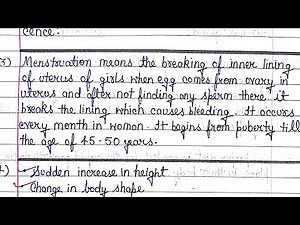 cence.
3) Menstruation means the breaking of inner lining
of uterus of girls when egg comes from ovary in
uterus and after not finding any sperm there it
breaks the lining which causes bleeding. It occurs
every month in woman. It begins from puberty till
the age of 45-50 years.
Sudden increase in height
Change in body shape